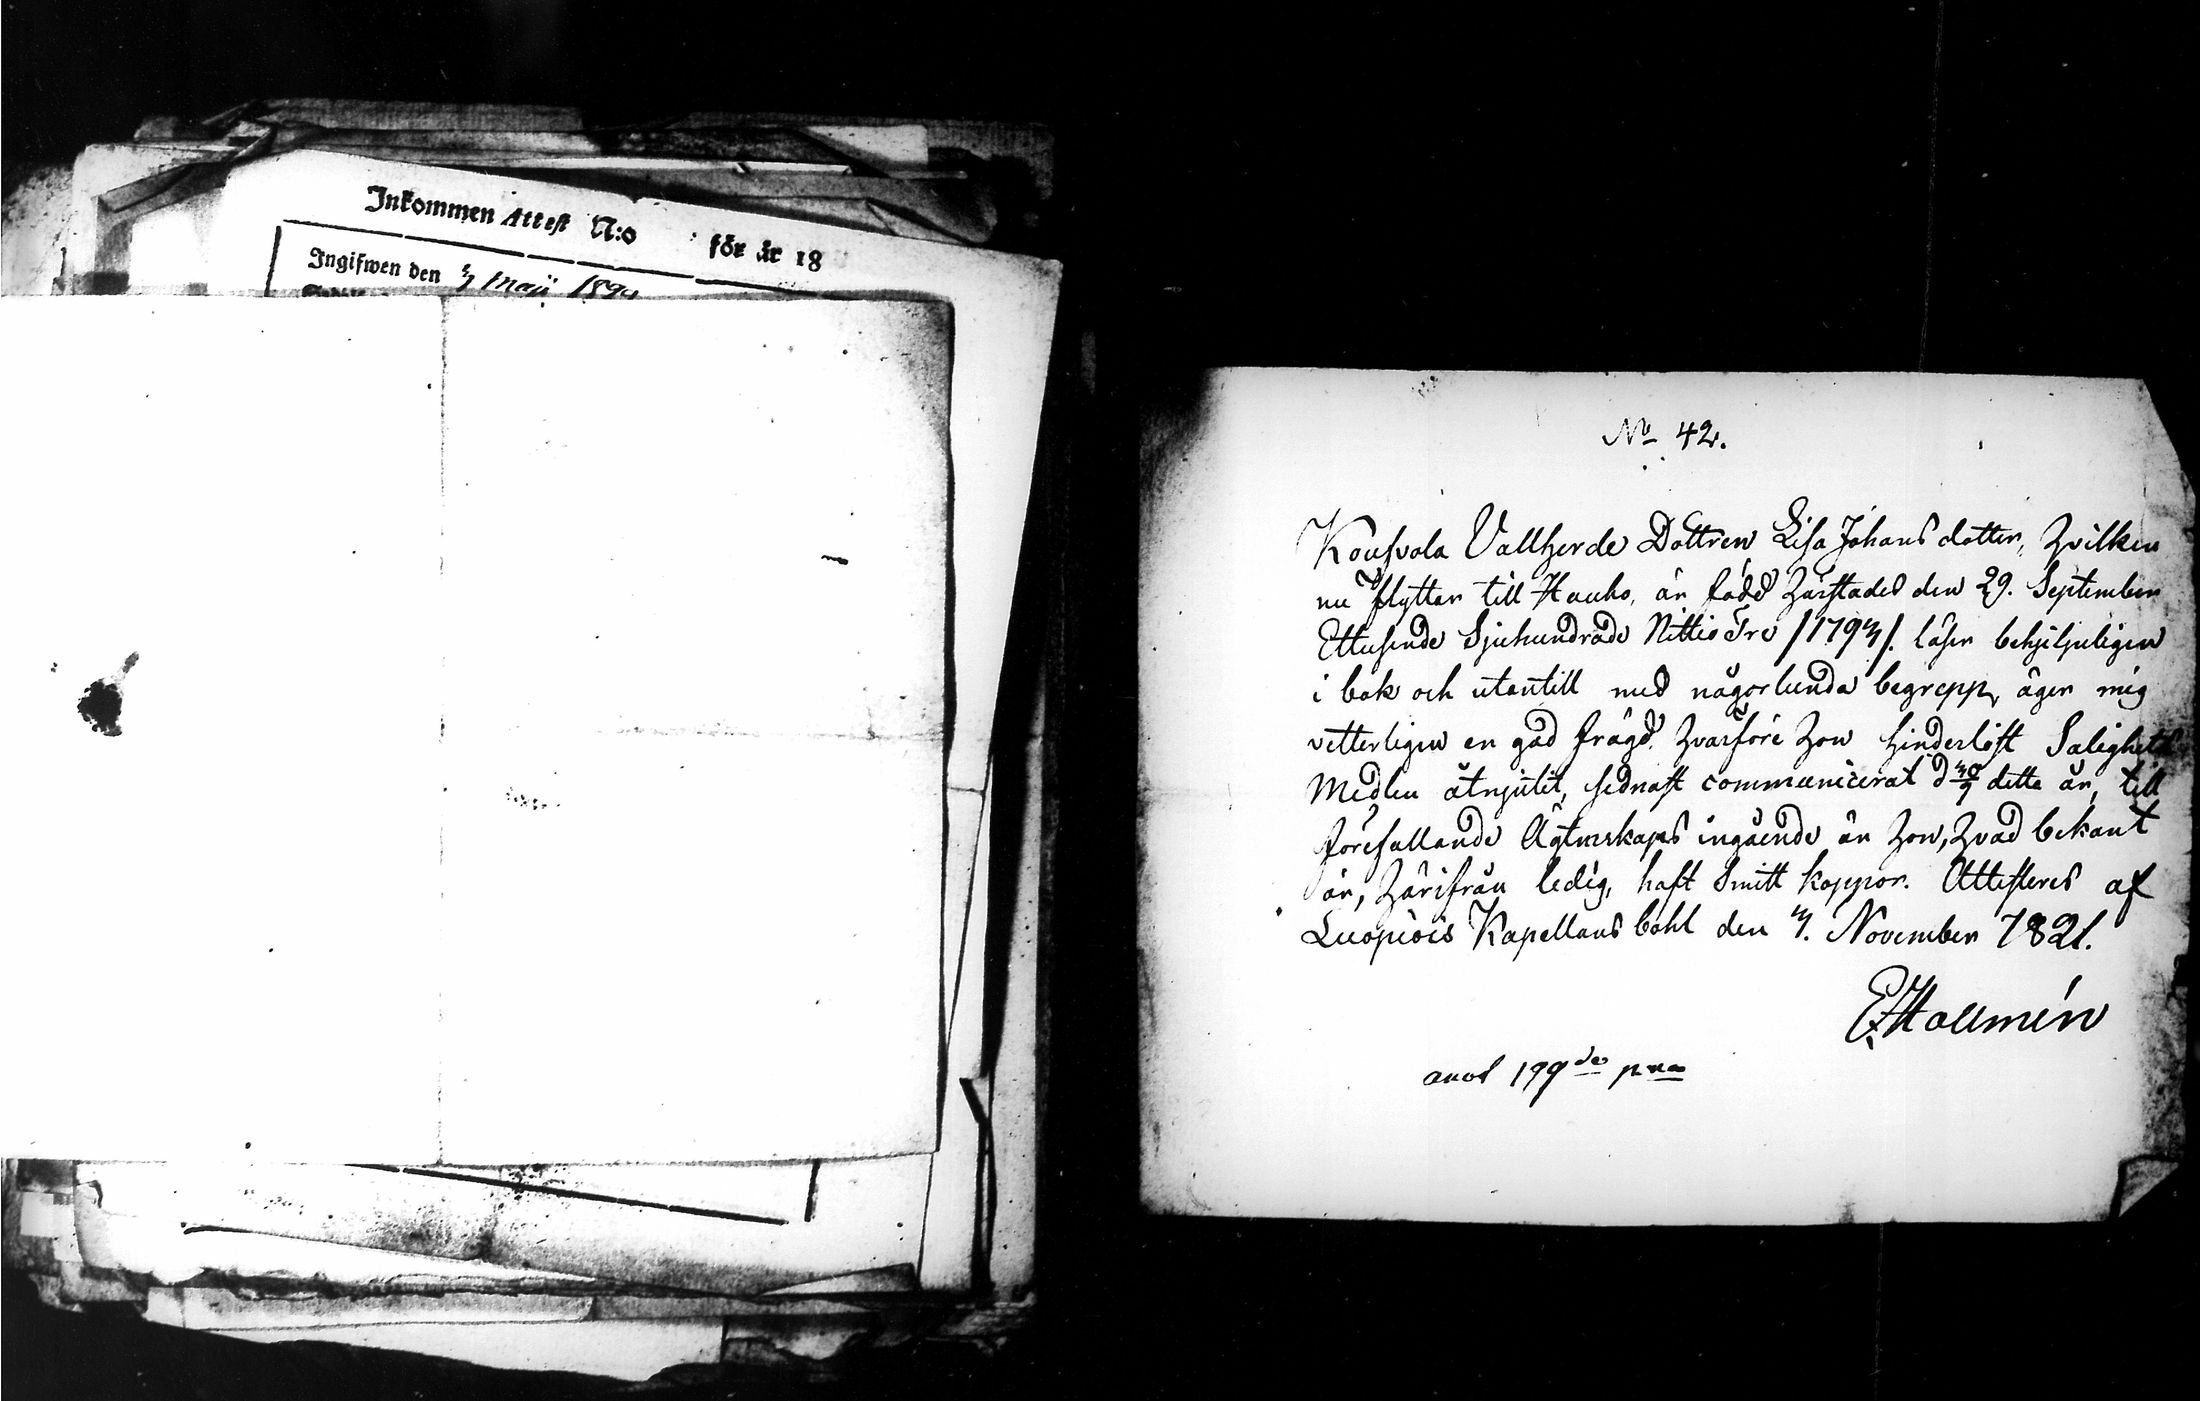 Inkommen Attest N:o för år 18
Ingifwen den 3 Maji 1890
No 42.
Kousvola Vallherde Dottren Lisa Johans dotter, hvilken
nu flyttar till Hauho, är född härstädes den 29. September
Ettusende Sjuhundrade Nittio Tre /1793/. läser behjelpeligen
i bok och utantill med någorlunda begrepp, äger mig
vetterligen en god frägd. hvarföre hon hinderlöst Salighets
Medlen åtnjutit, sednast communicerat d 30/9 detta år, till
förefallande Ägtenskaps ingående är hon, hvad bekant
är, härifrån ledig, haft Smitt koppor. Attesteres af
Luopiois Kapellans bohl den 3. November 1821.
E. Hallmén
199